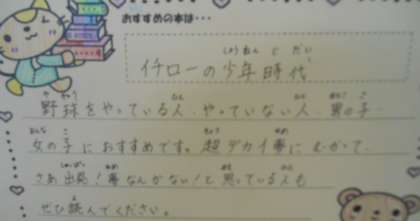 おすすめの本は・・・
イチローの少年時代
野球をやっている人、やっていない人、男の子・
女の子におすすめです。超デカイ夢にむかって、
さあ出発!夢なんかない!と思っている人も
ぜひ読んでください。